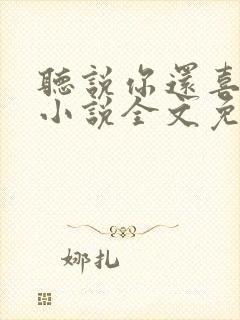 聽說你還喜
小說全文免
娜扎